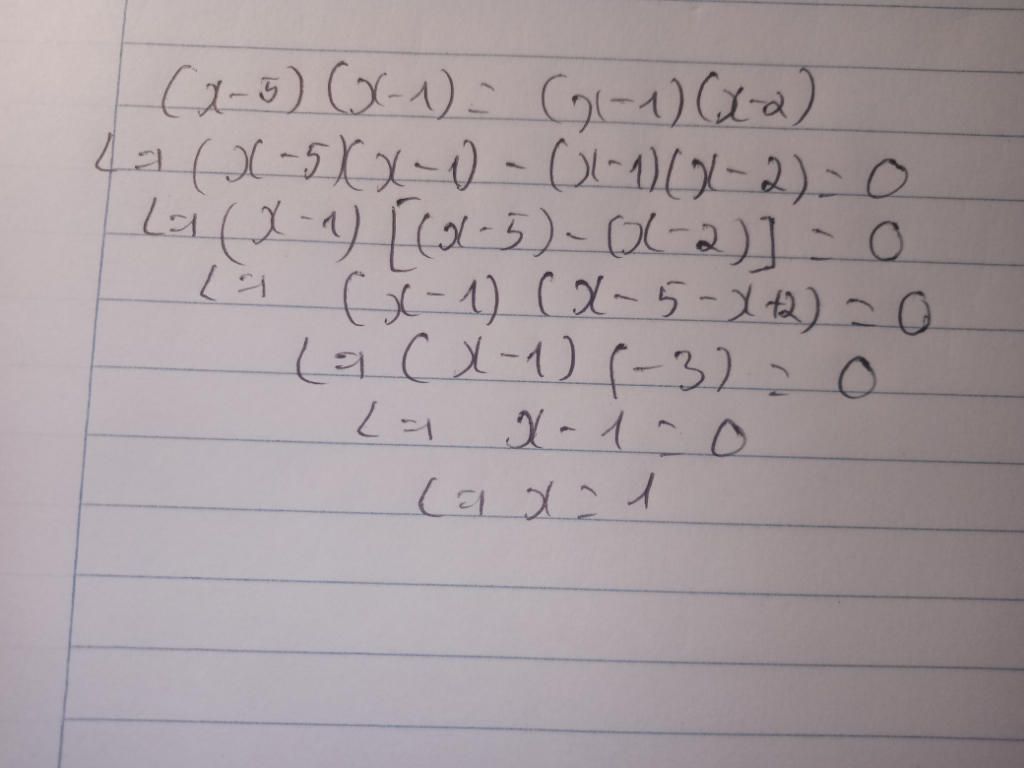 (x-5)(x-1) = (x-1)(x-2)
<=> (x-5)(x-1) - (x-1)(x-2) = 0
<=> (x-1) [(x-5) - (x-2)] = 0
<=> (x-1) (x-5-x+2) = 0
<=> (x-1) (-3) = 0
<=> x-1 = 0
<=> x = 1